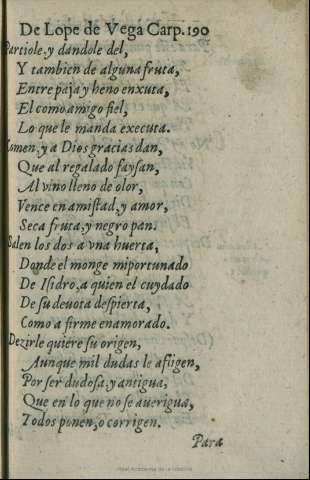 De Lope de Vega Carp. 190
Partiole, y dandole del,
Y tambien de alguna fruta,
Entre paja y heno enxuta,
El como amigo fiel,
Lo que le manda executa.
Comen, y a Dios gracias dan,
Que al regalado faysan,
Al vino lleno de olor,
Vence en amistad, y amor,
Seca fruta, y negro pan.
Salen los dos a vna huerta,
Donde el monge importunado
De Isidro, a quien el cuydado
De su deuota despierta,
Como a firme enamorado.
Dezirle quiere su origen,
Aunque mil dudas le afligen,
Por ser dudosa, y antigua,
Que en lo que no se auerigua,
Todos ponen, o corrigen.
Para